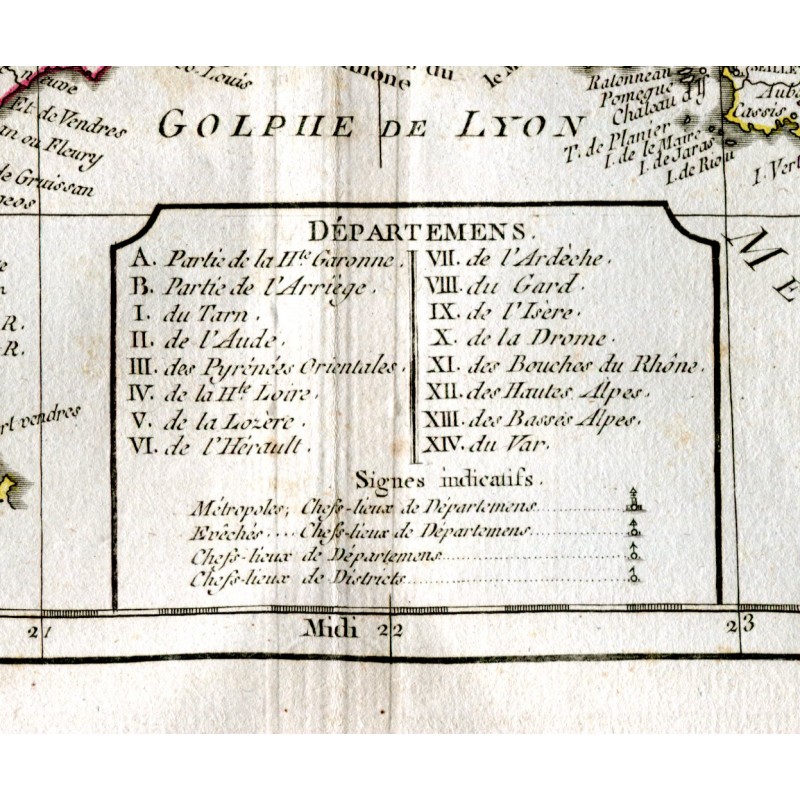 neuve
Louis
Rhone
du
le
Ratonneau
Pomegue
Chateau d'If
Aub
Cassis
Et. de Vendres
ou Fleury
de Gruissan
GOLPHE DE LYON
T. de Planier
I. de le Maire
I. de Jaras
I. de Riou
I. Vert
ME
R.
R.
vendres
DÉPARTEMENS.
A. Partie de la Hte. Garonne.
B. Partie de l'Arriége.
I. du Tarn.
II. de l'Aude.
III. des Pyrénées Orientales.
IV. de la Hte. Loire.
V. de la Lozère.
VI. de l'Hérault.
VII. de l'Ardèche.
VIII. du Gard.
IX. de l'Isère.
X. de la Drome.
XI. des Bouches du Rhône.
XII. des Hautes Alpes.
XIII. des Basses Alpes.
XIV. du Var.
Signes indicatifs.
Métropoles, Chefs-lieux de Départemens
Evêchés .... Chefs-lieux de Départemens
Chefs-lieux de Départemens
Chefs-lieux de Districts
21 Midi 22 23